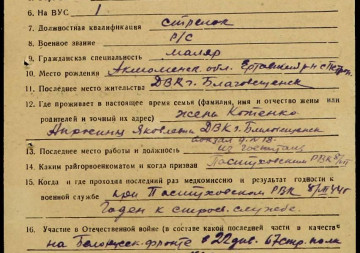 6. На ВУС 1
7. Должностная квалификация стрелок
8. Военное звание р/с
9. Гражданская специальность маляр
10. Место рождения Акмоленск. обл.
11. Последнее место жительства ДВК г. Благовещенск
12. Где проживает в настоящее время семья (фамилия, имя и отчество жены или
родителей и точный их адрес) жена Котенко
Яковлевна ДВК г. Благовещенск
13. Последнее место работы и должность из госпиталя
14. Каким райгорвоенкоматом и когда призван РВК
15. Когда и где проходил последний раз медкомиссию и результат годности к
военной службе при РВК
Годен к строев. службе.
16. Участие в Отечественной войне (в составе какой последней части и в качестве
на Белорусск. фронте в 22 див. 67 стр. полк